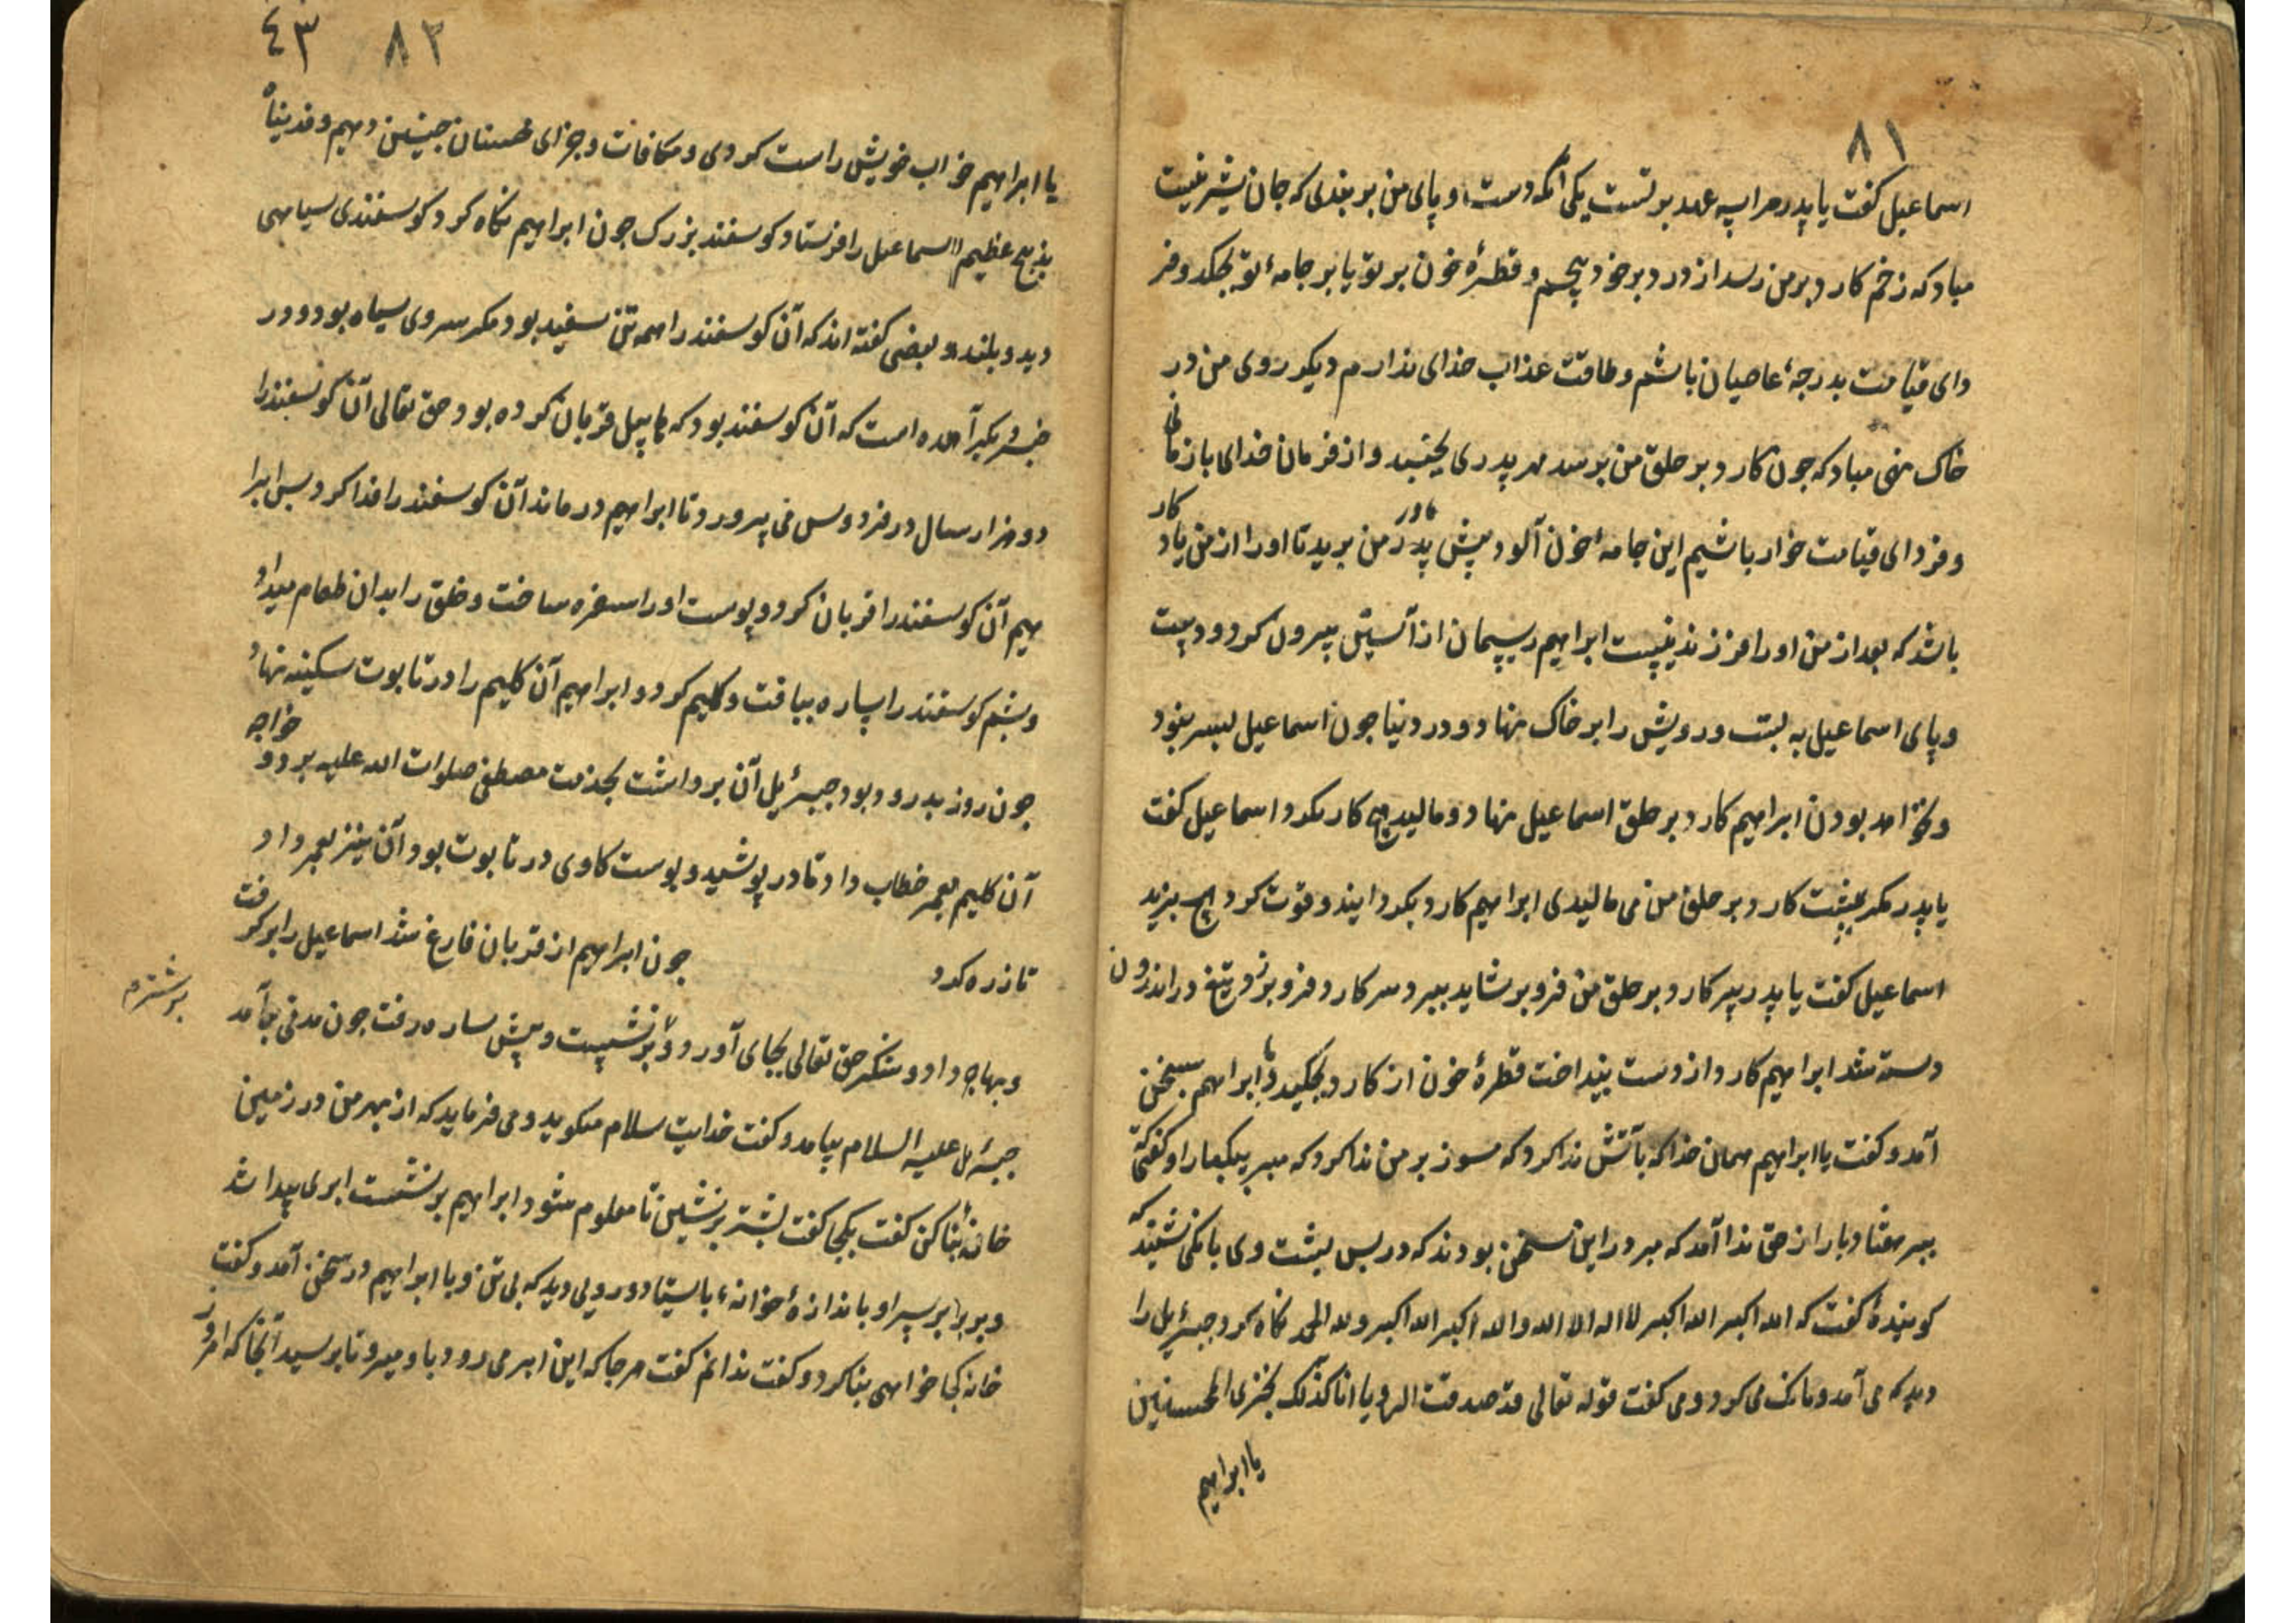 ۸۱
اسماعیل کفت یا پدر مرا سه عهد بر تست یکی آنکه دست و پای من بر بندی که جان شیرینست
مباد که زخم کارد بر من رسد از درد بر خود پیچم و قطرهٔ خون بر تو یا بر جامهٔ تو بچکد و فر
دای قیامت بدرجهٔ عاصیان باشم و طاقت عذاب خدای ندارم دیکر روی من در
خاک نهی مباد که جون کارد بر حلق من برسد مهر پدری بجنبد و از فرمان خدای باز مانی
و فردای قیامت خوار باشیم این جامهٔ خون آلود پیش مادر من برید تا او را از من یاد کار
باشد که بعد از من او را فرزند نیست ابراهیم ریسمان از آستین بیرون کرد و دست
و پای اسماعیل به بست و رویش را بر خاک نهاد و در دنیا جون اسماعیل پسر نبود
و نخواهد بودن ابراهیم کارد بر حلق اسماعیل نهاد و مالید هیچ کار نکرد اسماعیل کفت
یا پدر مکر پشت کارد بر حلق من می مالیدی ابراهیم کارد بکردانید و قوت کرد هیچ نبرید
اسماعیل کفت یا پدر سر کارد بر حلق من فرو بر شاید ببرد سر کارد فرو برد تیغ در اندرون
دسته شد ابراهیم کارد از دست بینداخت قطرهٔ خون از کارد بچکید با ابراهیم بسخن
آمد و کفت یا ابراهیم همان خدا که بآتش ندا کرد که مسوز بر من ندا کرد که مبر یکبار او کفت که
ببر هفتاد بار از حق ندا آمد که مبر در این سخن بودند که در پس پشت وی بانکی شنید که
کویندهٔ کفت که الله اکبر الله اکبر لا اله الا الله والله اکبر الله اکبر ولله الحمد نکاه کرد جبرئیل را
دید که می آمد و بانک می کرد و می کفت قوله تعالی قد صدقت الرویا انا کذلک نجزی المحسنین
یا ابراهیم
۸۲ ٤٣
یا ابراهیم خواب خویش راست کردی و مکافات و جزای محسنان جنین دهیم و فدیناه
بذبح عظیم اسماعیل را فرستاد کوسفند بزرک جون ابراهیم نکاه کرد کوسفندی سیاهی
دید و بلند و بعضی کفته اند که آن کوسفند را همه تن سفید بود مکر سروی سیاه بود و در
خبر دیکر آمده است که آن کوسفند بود که هابیل قربان کرده بود حق تعالی آن کوسفند را
دو هزار سال در فردوس می پرورد تا ابراهیم درماند آن کوسفند را فدا کرد پس ابرا
هیم آن کوسفند را قربان کرد و پوست او را سفره ساخت و خلق را بدان طعام میداد
و پشم کوسفند را ساره ببافت و کلیم کرد و ابراهیم آن کلیم را در تابوت سکینه نهاد
جون روز بدر رود بود جبرئیل آن برداشت بخدمت مصطفی صلوات الله علیه برد و خواجه
آن کلیم بعمر خطاب داد تا در پوشید و پوست کاوی در تابوت بود آن نیز بعمر داد
تا زره کرد جون ابراهیم از قربان فارغ شد اسماعیل را بر کرفت
و بهاجر داد و شکر حق تعالی بجای آورد و بر نشست و پیش ساره رفت جون مدتی بر آمد
بر شترم
جبرئیل علیه السلام بیامد و کفت خدایت سلام میکوید و می فرماید که از بهر من در زمین
خانهٔ بنا کن کفت بکجا کفت بشتر بر نشین تا معلوم شود ابراهیم بر نشست ابری پیدا شد
و بر برابر سر او باندازهٔ خانه بایستاد و رویی دید که بی تن و با ابراهیم در سخن آمد و کفت
خانه کجا خواهی بنا کرد و کفت ندانم کفت هر جا که این ابر می رود با او میرو تا برسید آنجا که امروز